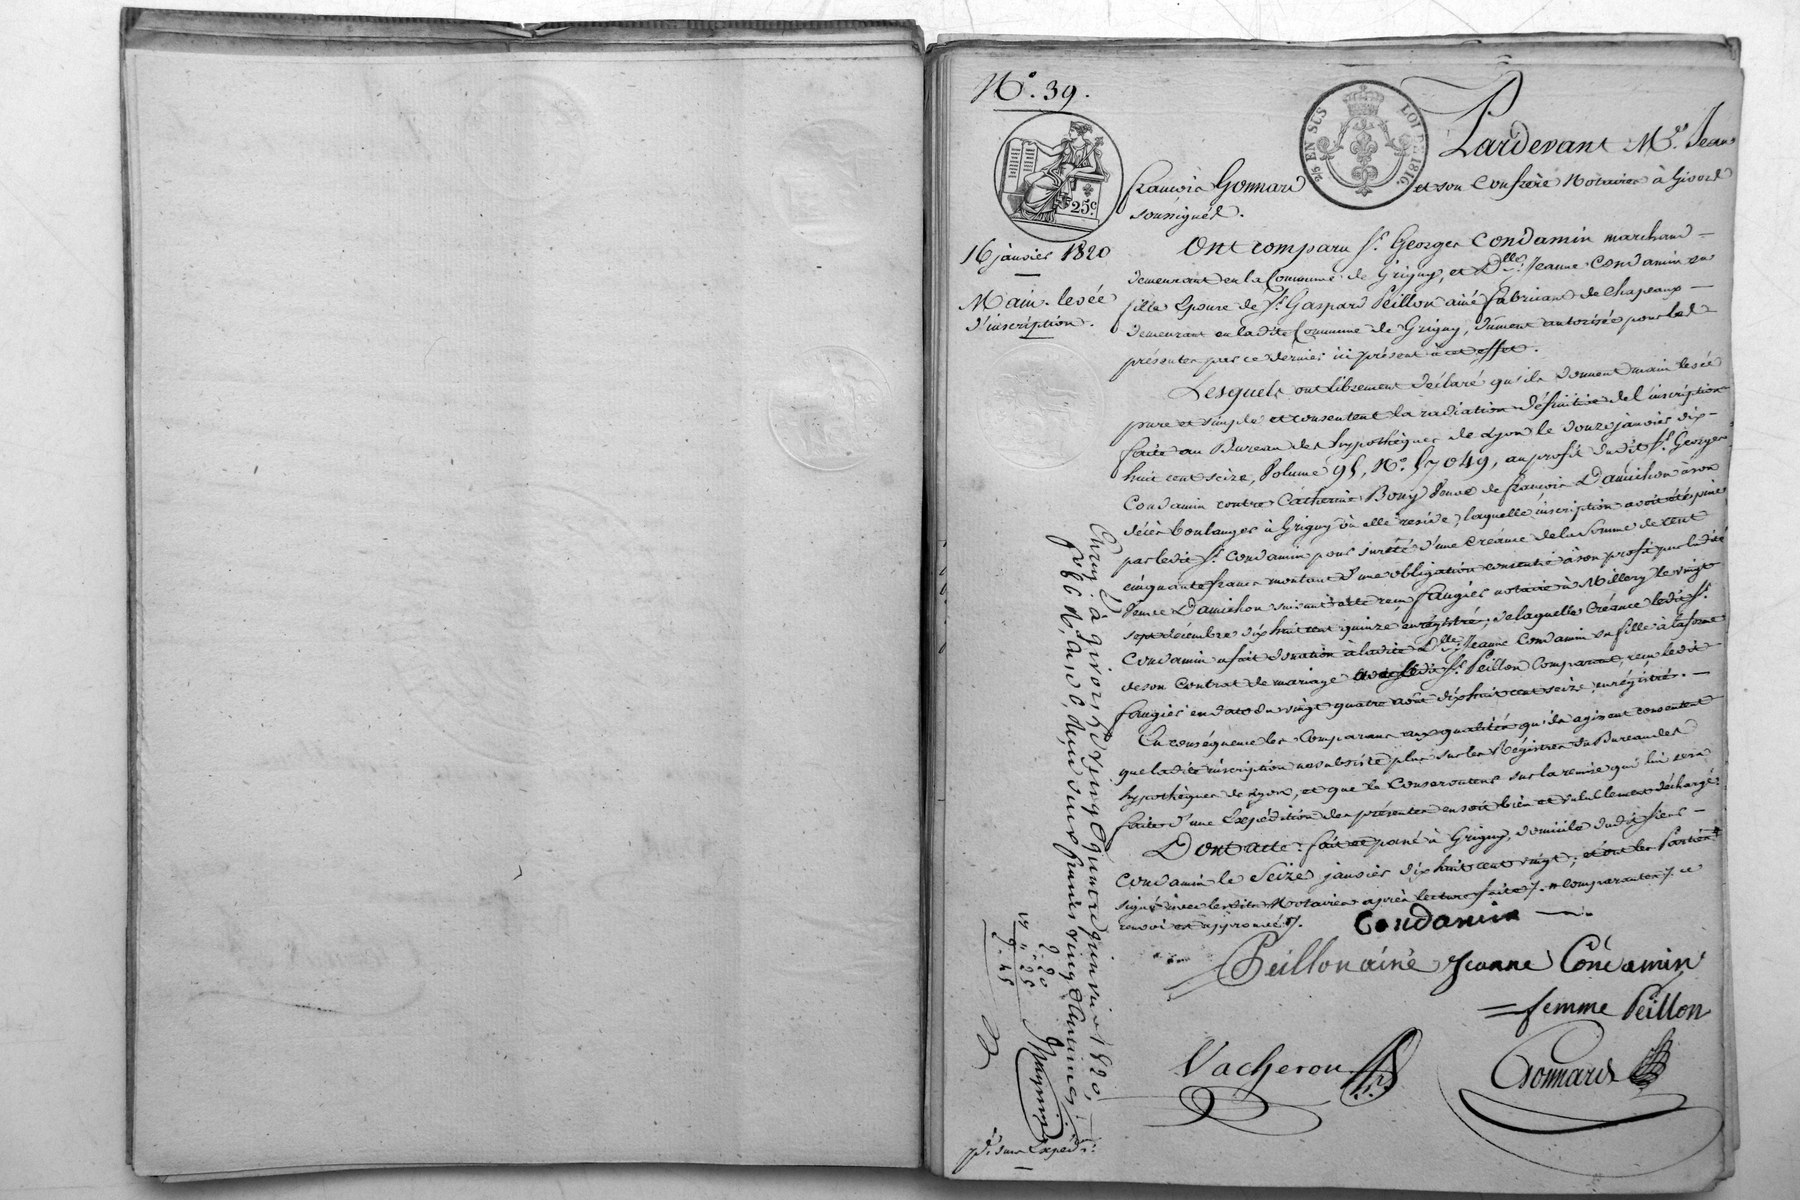 N.° 39.
25 EN SUS
LOI DE 1816.
25.c
16 janvier 1820
Main-levée
d'inscription.
Pardevant M.e Jean
françois Gonnard et son Confrère Notaires à Givors
soussignés.
Ont comparu S.r Georges Condamin marchand
demeurant en la Commune de Grigny, et D.lle Jeanne Condamin sa
fille Epouse de S.r Gaspard Peillon ainé fabricant de Chapeaux
demeurant en ladite Commune de Grigny, dûment autorisée pour les
présentes par ce dernier ici présent à cet effet.
Lesquels ont librement déclaré qu'ils donnent main levée
pure et simple et consentent la radiation définitive de l'inscription
faite au Bureau des hypothèques de Lyon le douze janvier dix-
huit cent seize, Volume 95, N.° 57049, au profit dudit S.r Georges
Condamin contre Catherine Bony Veuve de françois Damichon à son
décès boulanger à Grigny où elle réside; laquelle inscription avoit été prise
par ledit S.r Condamin pour sureté d'une Créance de la Somme de cent
cinquante francs montant d'une obligation consentie à son profit par ladite
Veuve Damichon suivant acte reçu faugier notaire à Millery le vingt
sept décembre dix huit cent quinze enrégistré; de laquelle Créance ledit S.r
Condamin a fait donation à ladite D.lle Jeanne Condamin sa fille à la forme
de son Contrat de mariage avec ledit S.r Peillon Comparant, reçu ledit
faugier en date du vingt quatre août dix huit cent seize enrégistré.
En conséquence les Comparans aux qualités qu'ils agissent consentent
que ladite inscription ne subsiste plus sur les Régistres du Bureau des
hypothèques de Lyon, et que le Conservateur sur la remise qui lui sera
faite d'une Expédition des présentes en soit bien et valablement déchargé.
Dont acte: fait et passé à Grigny, domicile dudit Sieur
Condamin le Seize janvier dix huit cent vingt; et ont les Parties
signé avec lesdits Notaires après lecture faite /. comparantes /. ce
renvoi est approuvé /.
Condamin
Peillon ainé Jeanne Condamin
femme Peillon
Vacheron
Gonnard
Enreg.é à Givors le vingt quatre janvier 1820,
deux francs vingt centimes
2. 20
25
2. 45